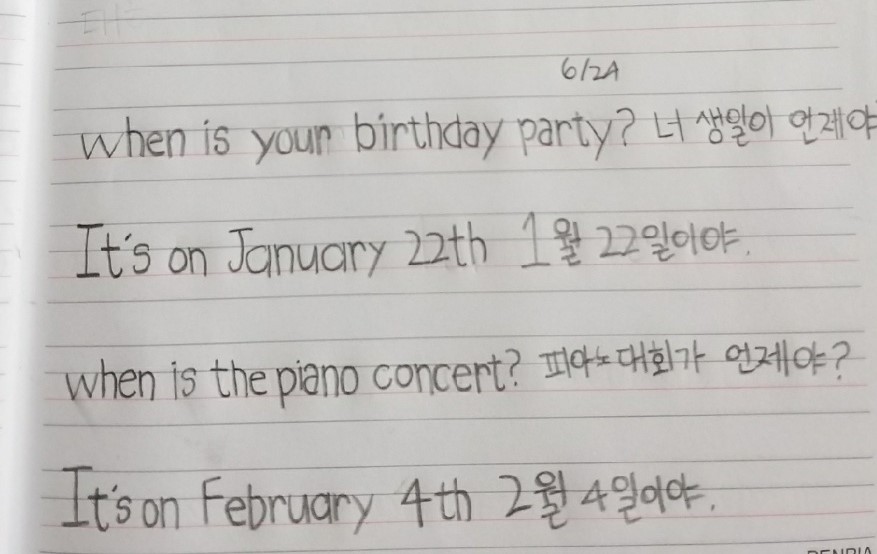 6/2A
When is your birthday party? 너 생일이 언제야
It's on January 22th 1월 22일이야.
when is the piano concert? 피아노대회가 언제야?
It's on February 4th 2월 4일이야.